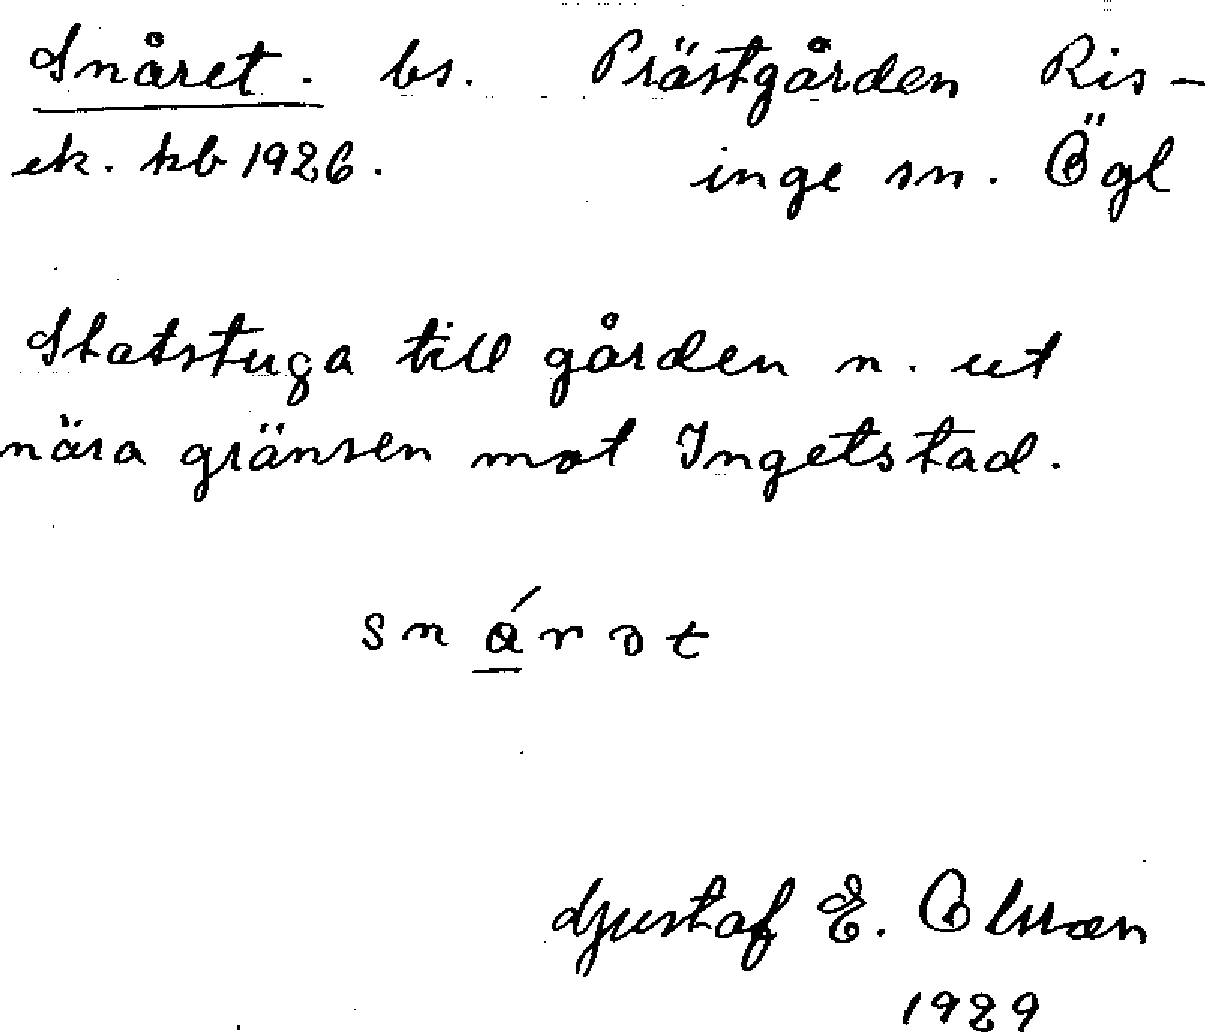 Snåret. bs. Prästgården Ris-
ek. kb 1926. inge sn. Ögl
Statstuga till gården n. ut
nära gränsen mot Ingetstad.
snárot
Gustaf E. Olsson
1929